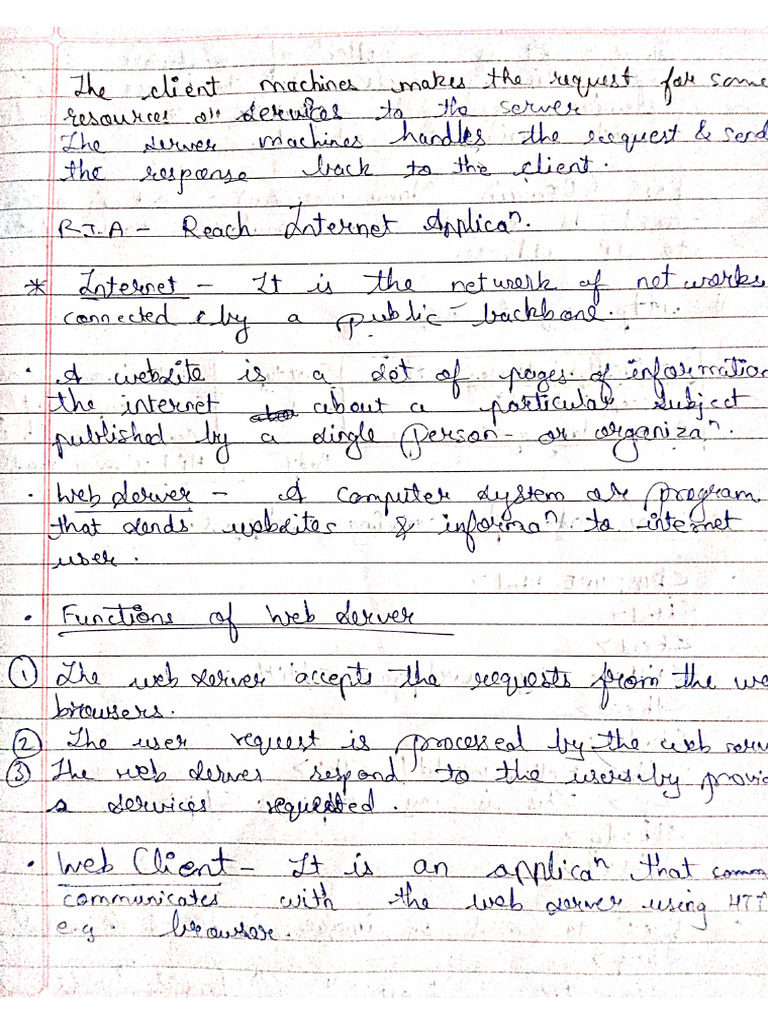 The client machines makes the request for some
resources or services to the server
The server machines handles the request & send
the response back to the client.
R.I.A - Reach Internet Applicaⁿ.
* Internet - It is the network of networks
connected by a public backbone.
· A website is a set of pages of informatio
the internet about a particular subject
published by a single person or organizaⁿ.
· Web server - A computer system or program
that sends websites & informaⁿ to internet
user.
· Functions of Web server
① The web server accepts the requests from the we
browsers.
② The user request is processed by the web serv
③ The web server respond to the users by provi
a services requested.
· Web Client - It is an applicaⁿ that comm
communicates with the web server using HTT
e.g. browser.